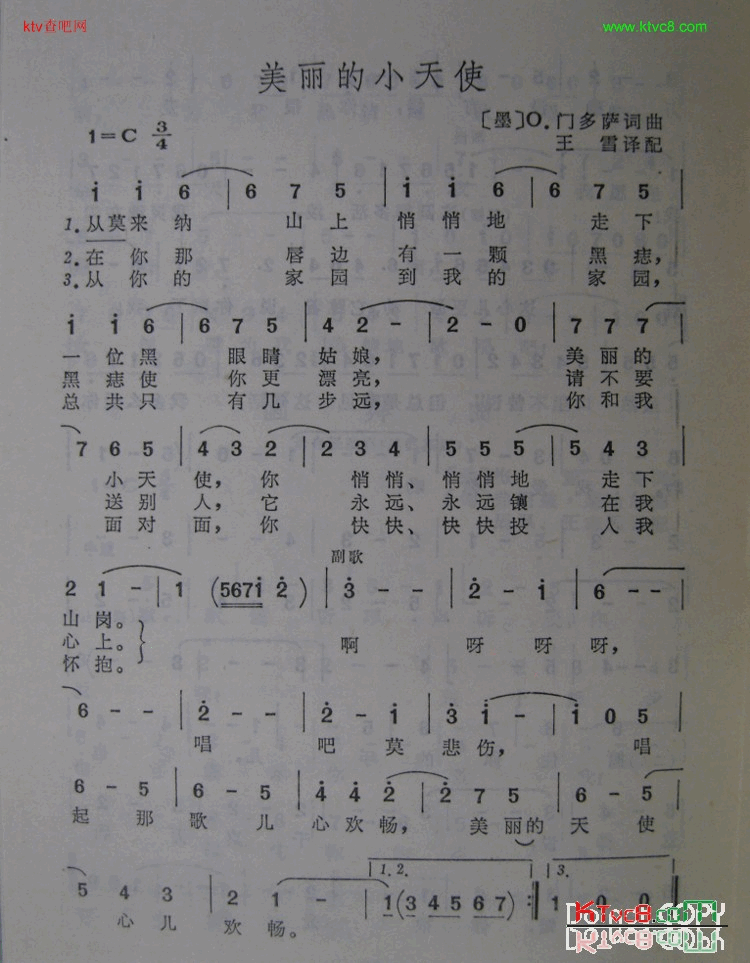 ktv查吧网
www.ktvc8.com
美丽的小天使
1=C 3/4
〔墨〕O.门多萨词曲
王 雪译配
i i 6 | 6 7 5 | i i 6 | 6 7 5 |
1.从莫来纳 山上 悄悄地 走下
2.在你那 唇边 有一颗 黑痣,
3.从你的 家园 到我的 家园,
i i 6 | 6 7 5 | 4 2 - | 2 - 0 | 7 7 7 |
一位黑 眼睛 姑娘, 美丽的
黑痣使 你更 漂亮, 请不要
总共只 有几 步远, 你和我
7 6 5 | 4 3 2 | 2 3 4 | 5 5 5 | 5 4 3 |
小天 使,你 悄悄、悄悄地 走下
送别 人,它 永远、永远镶 在我
面对 面,你 快快、快快投 入我
副歌
2 1 - | 1 (5671 2) | 3 - - | 2 - i | 6 - - |
山岗。
心上。
怀抱。
啊 呀 呀 呀,
6 - - | 2 - - | 2 - i | 3 i - | i 0 5 |
唱 吧 莫 悲伤, 唱
6 - 5 | 6 - 5 | 4 4 2 | 2 7 5 | 6 - 5 |
起 那 歌 儿 心 欢 畅, 美 丽的 天 使
1.2. 3.
5 4 3 | 2 1 - | 1 (3 4 5 6 7) :| 1 0 0 ‖
心 儿 欢 畅。
KTvc8.com
DO NOT COPY